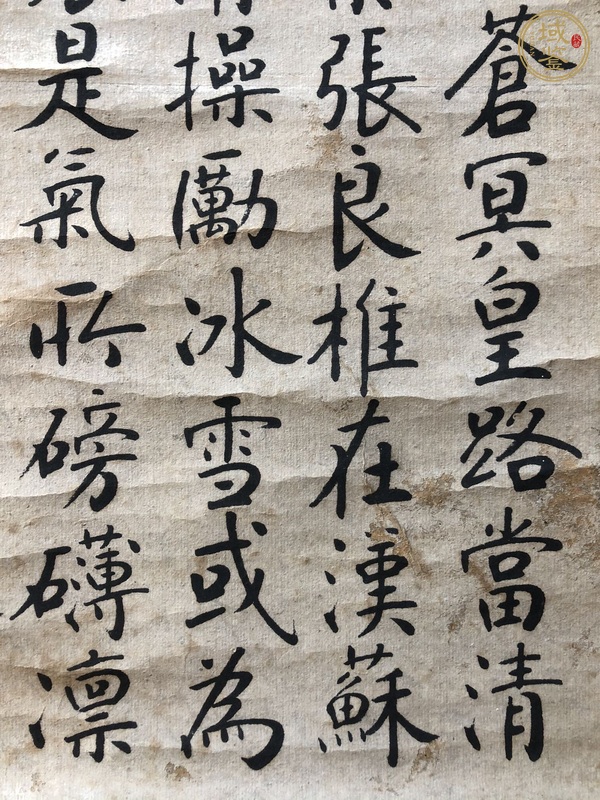 蒼冥皇路當清
張良椎在漢蘇
操勵冰雪或為
是氣所磅礴凛
域鉴